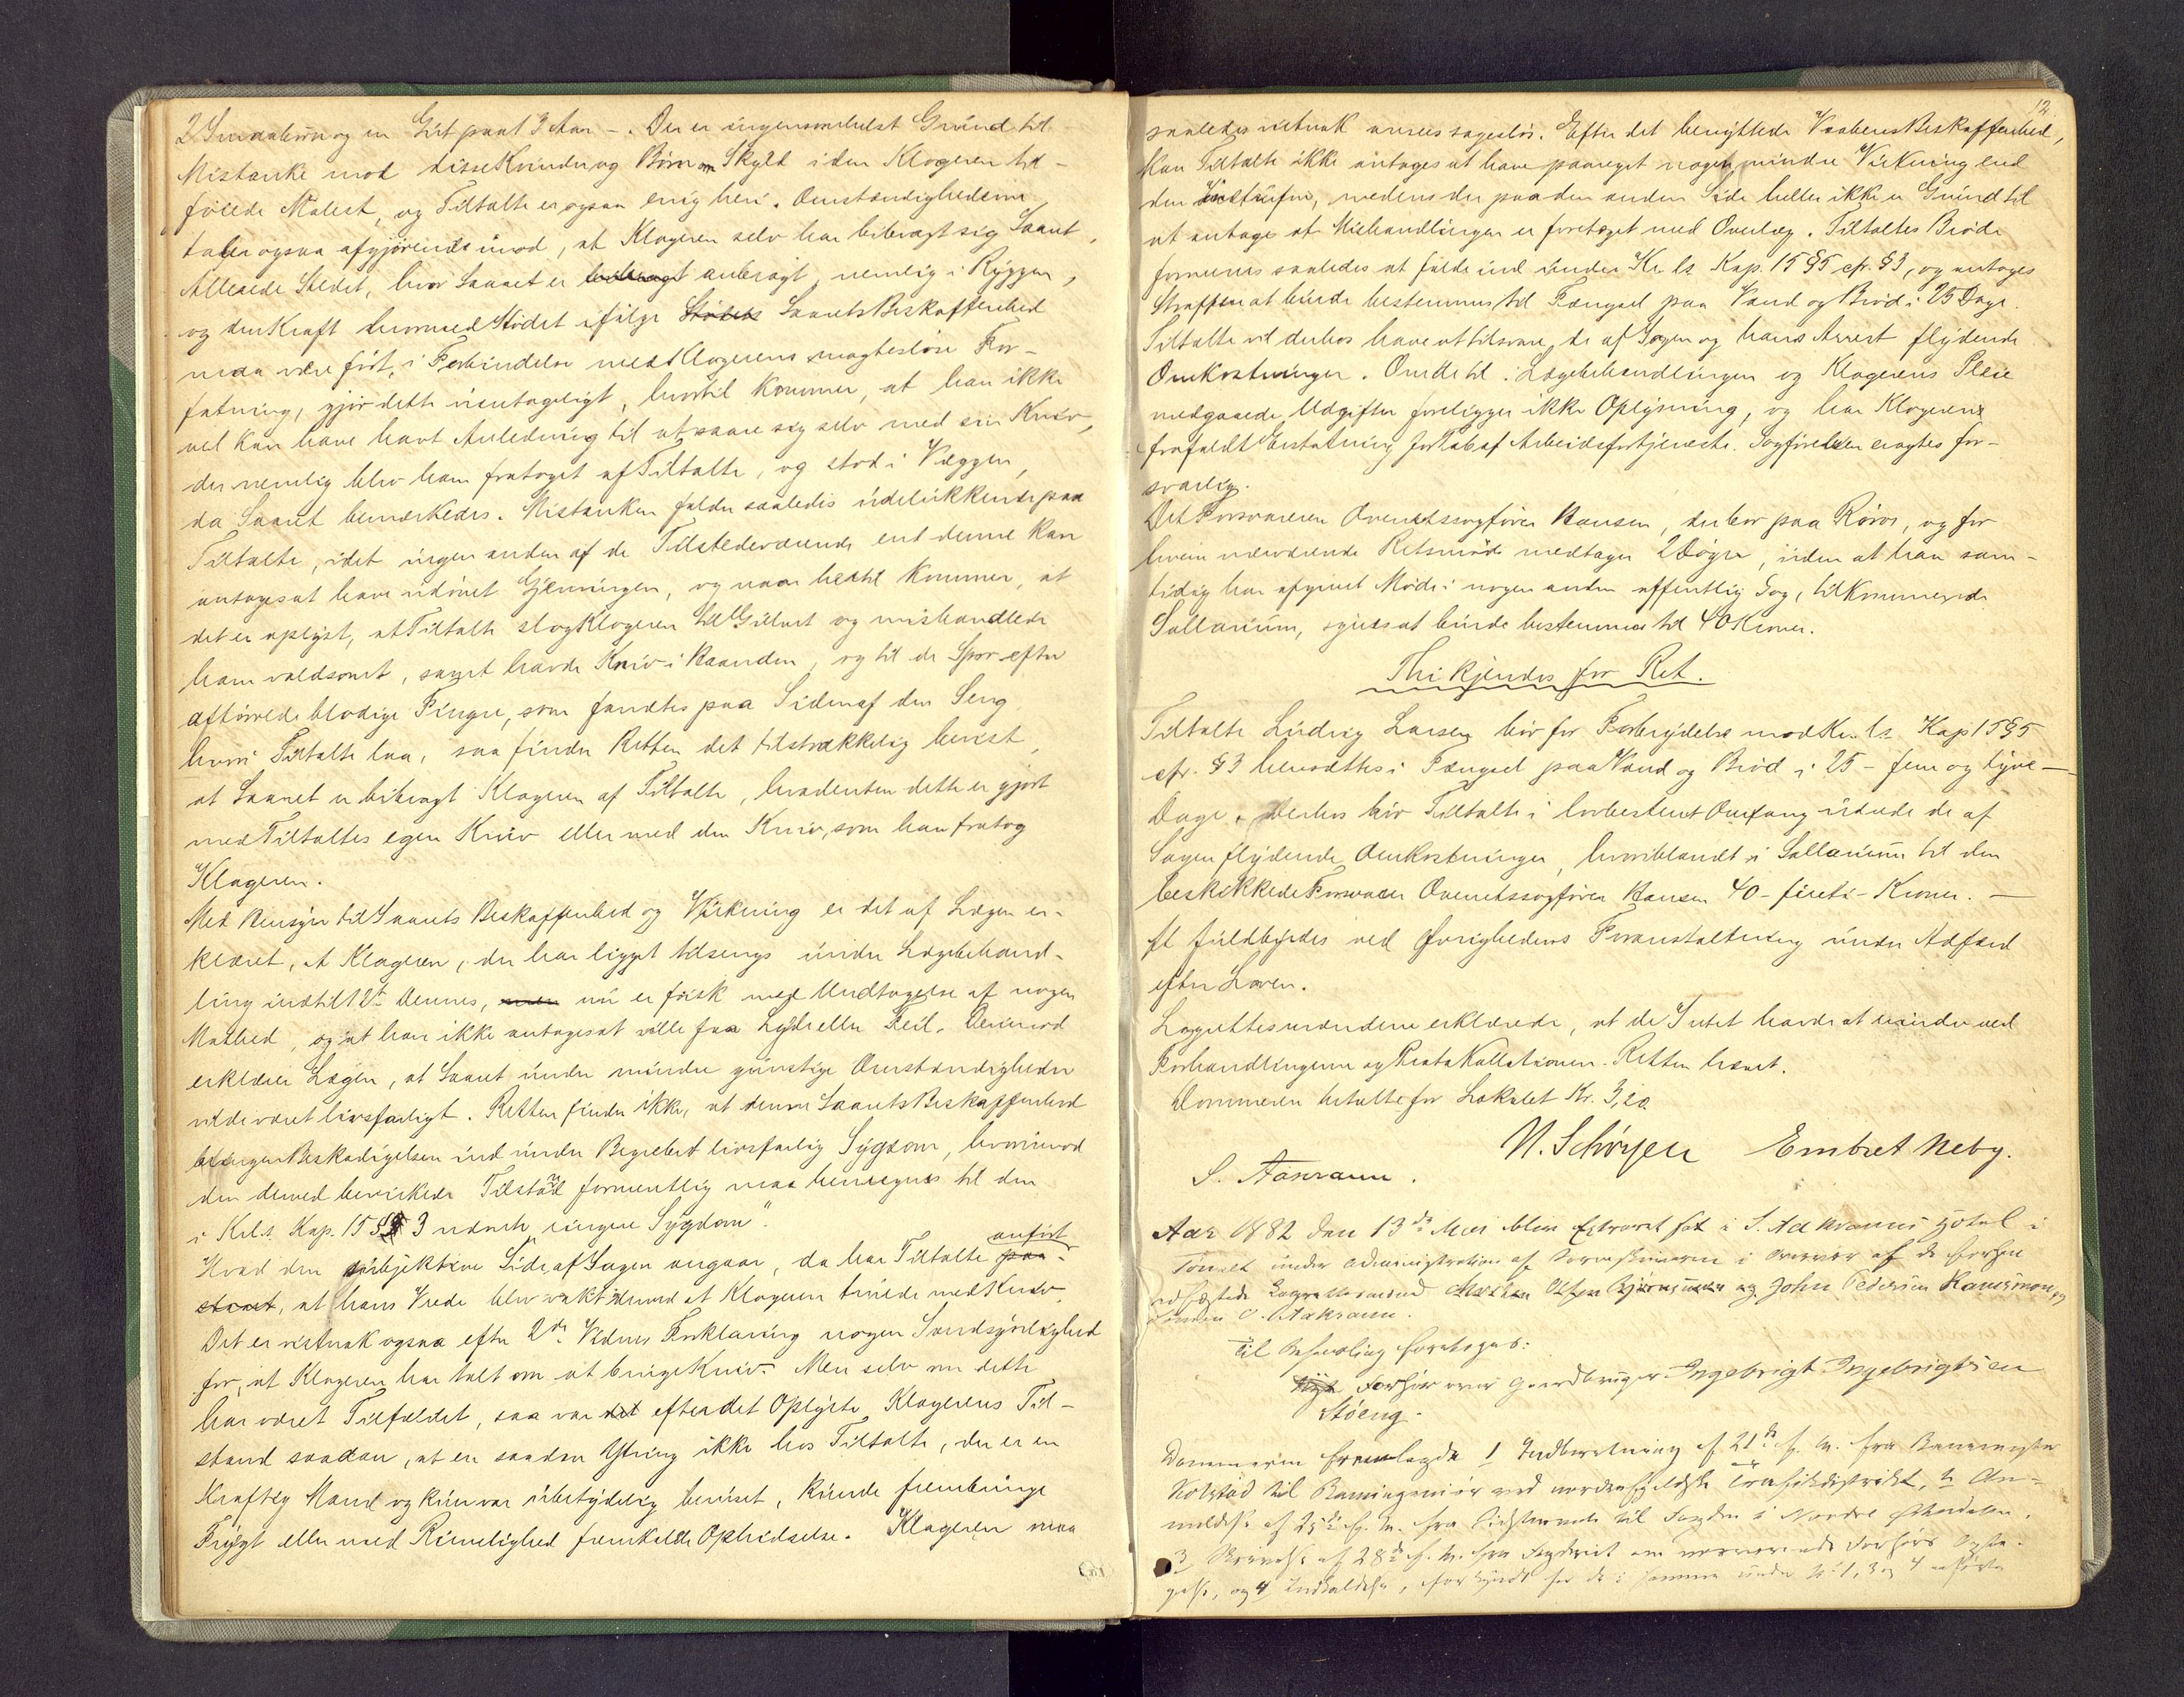 2 Smaabørn og en Gut paa 13 Aar –. Der er ingensomhelst Grund til
Mistanke mod disse Kvinder og Børn om Skyld i den Klageren til-
føiede Malest, og Tiltalte er ogsaa enig heri. Omstændighederne
taler ogsaa afgjørende imod, at Klageren selv har bibragt sig Saaret,
Allerede Stedet, hvor Saaret er bibragt anbragt, nemlig i Ryggen,
og den Kraft hvormed Stødet ifølge Stødets Saarets Beskaffenhed
maa være ført, i Forbindelse med Klagerens magtesløse For-
fatning, gjør dette uantageligt, hvortil kommer, at han ikke
vel kan have havt Anledning til at saare sig selv med sin Kniv,
der nemlig blev ham frataget af Tiltalte, og stod i Væggen,
da Saaret bemærkedes. Mistanken falder saaledes udelukkende paa
Tiltalte, idet ingen anden af de Tilstedeværende end denne kan
antages at have udøvet Gjerningen, og naar hertil kommer, at
det er oplyst, at Tiltalte slog Klageren til Gulvet og mishandlede
ham voldsomt, samt havde Kniv i Haanden, og til de Spor efter
aftørrede blodige Fingre, som fandtes paa Siden af den Seng,
hvori Tiltalte laa, saa finder Retten det tilstrækkelig bevist,
at Saaret er bibragt Klageren af Tiltalte, hvadenten dette er gjort
med Tiltaltes egen Kniv eller med den Kniv, som han fratog
Klageren.
Med Hensyn til Saarets Beskaffenhed og Virkning er det af Lægen er-
klæret, at Klageren, der har ligget tilsengs under Lægebehand-
ling indtil 12te dennes, men nu er frisk med Undtagelse af nogen
Mathed, og at han ikke antages at ville faa Lyde eller Feil. Derimod
erklærer Lægen, at Saaret under mindre gunstige Omstændigheder
vilde været livsfarligt. Retten finder ikke, at denne Saarets Beskaffenhed
bringer Beskadigelsen ind under Begrebet livsfarlig Sygdom, hvorimod
den derved bevirkede Tilstand formentlig maa henregnes til den
i Krls. Kap. 15 § 3 nævnte ringere Sygdom".
Hvad den subjektive Side af Sagen angaar, da har Tiltalte anført
at hans Vrede blev vakt derved at Klageren truede med Kniv.
Det er vistnok ogsaa efter 2det Vidnes Forklaring nogen Sandsynlighed
for, at Klageren har talt om at bruge Kniv. Men selv om dette
har været Tilfældet, saa var det efter det Oplyste Klagerens Til-
stand saadan, at en saadan Ytring ikke hos Tiltalte, der er en
kraftig Mand og kun var ubetydelig beruset, kunde frembringe
Frygt eller med Rimelighed fremkalde Ophidselse. Klageren maa
12
saaledes vistnok ansees sagesløs. Efter det benyttede Vaabens Beskaffenhed,
kan Tiltalte ikke antages at have paaregnet nogen mindre Virkning end
den indtrufne, medens der paa den anden Side heller ikke er Grund til
at antage at Mishandlingen er foretaget med Overlæg. Tiltaltes Brøde
formenes saaledes at falde ind under Kr. ls Kap. 15 § 5 cfr. § 3, og antages
Straffen at burde bestemmes til Fængsel paa Vand og Brød i 25 Dage.
Tiltalte vil derhos have at tilsvare de af Sagen og hans Arrest flydende
Omkostninger. Om de til Lægebehandlingen og Klagerens Pleie
medgaaede Udgifter foreligger ikke Oplysning, og har Klageren
frafaldt Erstatning for Tab af Arbeidsfortjeneste. Sagførelsen eragtes for-
svarlig.
Det Forsvareren Overretssagfører Hansen, der bor paa Røros, og for
hvem nærværende Retsmøde medtager 2 Døgn, uden at han sam-
tidig har afgivet Møde i nogen anden offentlig Sag, tilkommende
Sallarium, synes at burde bestemmes til 40 Kroner.
Thi kjendes for Ret.
Tiltalte Ludvig Larsen bør for Forbrydelse mod Kr. ls Kap 15 § 5
cfr. § 3 hensættes i Fængsel paa Vand og Brød i 25 – fem og tyve –
Dage. Derhos bør Tiltalte i lovbestemt Omfang udrede de af
Sagen flydende Omkostninger, hvoriblandt i Sallarium til den
beskikkede Forsvarer Overretssagfører Hansen 40 – fireti – Kroner. –
At fuldbyrdes ved Øvrighedens Foranstaltning under Adfærd
efter Loven.
Lagrettesmændene erklærede, at de Intet havde at erindre ved
Forhandlingerne og Protokollationen. Retten hævet.
Dommeren betalte for Lokalet Kr. 3,20
N. Schørgen Embret Neby.
S. Aakrann.
Aar 1882 den 13de Mai blev Extraret sat i S. Aakranns Hotel i
Tønset under Administration af Sorenskriveren i Overvær af de forhen
edfæstede Lagrettesmænd Morten Olsen Bjørnsmoen og John Pedersen Ramsmoen og
S. Aakrann.
Til Behandling foretoges:
Forhør over Gaardbruger Ingebrigt Ingebrigtsen
Støeng.
Dommeren fremlagde 1 Indberetning af 21de f. M. fra Banemester
Kolstad til Baneingeniør ved nordenfjeldske Trafikdistrikt, 2 An-
meldelse af 25de f. M. fra til Fogden i Nordre Østerdalen.
3 Skrivelse af 28de f. M. fra Fogderiet om nærværende Forhørs Opta-
gelse, og 4 Indkaldelse, forkyndt for de i samme under No 1, 3 og 4 anførte